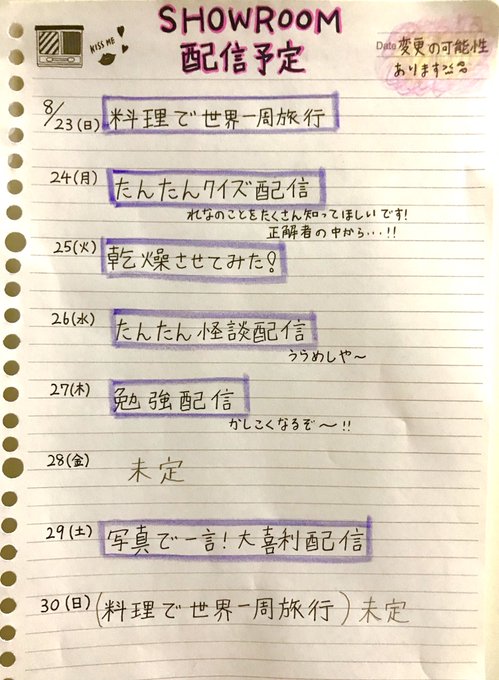 SHOWROOM
配信予定
KISS ME
Date 変更の可能性
あります
8/23(日) 料理で世界一周旅行
24(月) たんたんクイズ配信
れなのことをたくさん知ってほしいです!
正解者の中から・・・!!
25(火) 乾燥させてみた!
26(水) たんたん怪談配信
うらめしや〜
27(木) 勉強配信
かしこくなるぞ〜!!
28(金) 未定
29(土) 写真で一言!大喜利配信
30(日) (料理で世界一周旅行) 未定